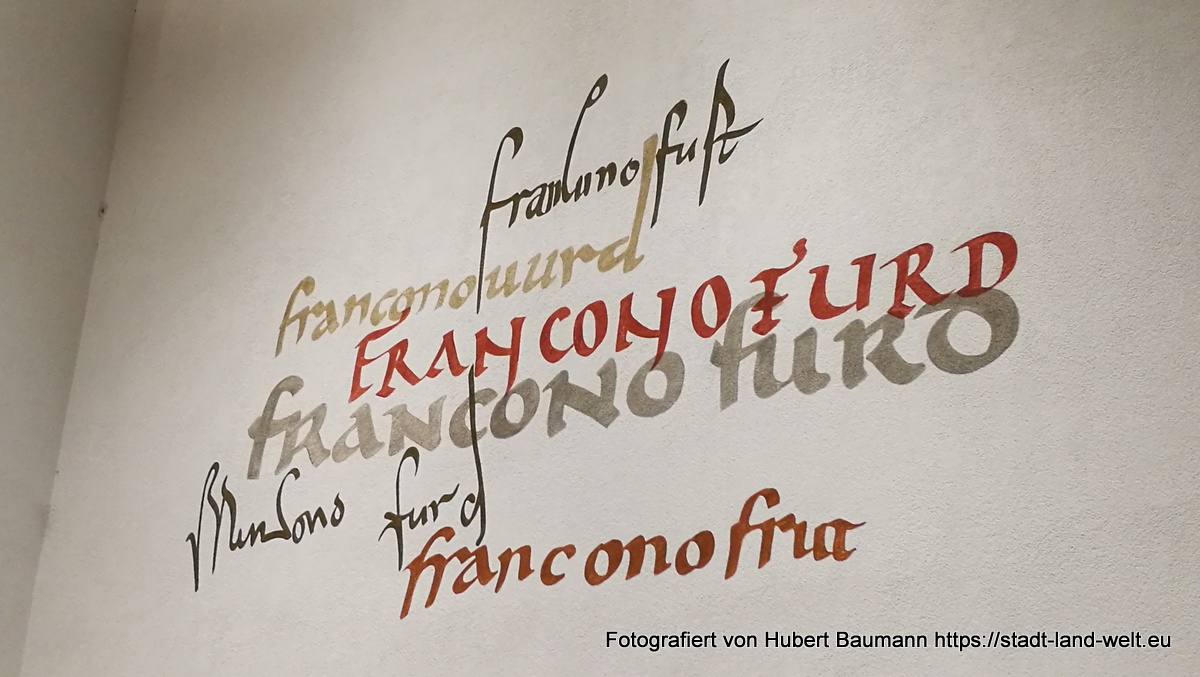 franconofurt
franconouurd
FRANCONOFURD
francono furd
francono furd
franconofrut
Fotografiert von Hubert Baumann https://stadt-land-welt.eu